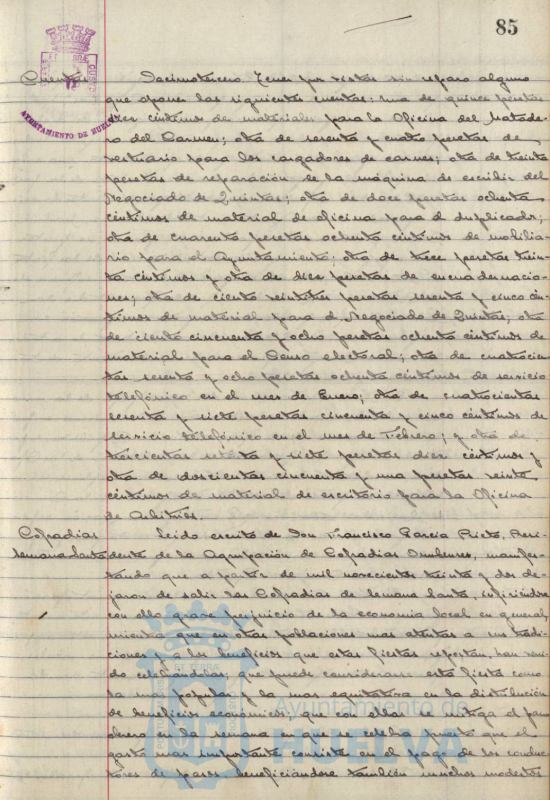 85
AYUNTAMIENTO DE HUELVA
Cuentas
Decimotercero. Tener por vistas sin reparo alguno
que oponer las siguientes cuentas: una de quince pesetas
diez céntimos de materiales para la Oficina del Matade-
ro del Carmen; otra de sesenta y cuatro pesetas de
vestuario para los cargadores de carnes; otra de treinta
pesetas de reparación de la máquina de escribir del
Negociado de Quintas; otra de doce pesetas ochenta
céntimos de material de oficina para el duplicador;
otra de cuarenta pesetas ochenta céntimos de mobilia-
rio para el Ayuntamiento; otra de trece pesetas trein-
ta céntimos y otra de diez pesetas de encuadernacio-
nes; otra de ciento veintitres pesetas sesenta y cinco cén-
timos de material para el Negociado de Quintas; otra
de ciento cincuenta y ocho pesetas ochenta céntimos de
material para el Censo electoral; otra de cuatrocien-
tas sesenta y ocho pesetas ochenta céntimos de servicio
telefónico en el mes de Enero; otra de cuatrocientas
sesenta y siete pesetas cincuenta y cinco céntimos de
servicio telefónico en el mes de Febrero; y otra de
trescientas y siete pesetas diez céntimos y
otra de doscientas cincuenta y una pesetas veinte
céntimos de material de escritorio para la Oficina
de Arbitrios.
Cofradias
Semana Santa
Leido escrito de Don Francisco García Prieto, Presi-
dente de la Agrupación de Cofradias Onubenses, manifes-
tando que a partir de mil novecientos treinta y dos de-
jaron de salir las Cofradias de Semana Santa, infiriéndose
con ello grave perjuicio de la economia local en general,
mientras que en otras poblaciones mas atentas a sus tradi-
ciones y a los beneficios que estas fiestas reportan, han veni-
do celebrándolas; que puede considerarse esta fiesta como
la mas popular y la mas equitativa en la distribución
de beneficios económicos, que con ellas se mitiga el paro
obrero en la semana en que se celebra puesto que el
gasto mas importante consiste en el pago de los conduc-
tores de pasos beneficiándose también muchos modestos
Ayuntamiento de
HUELVA